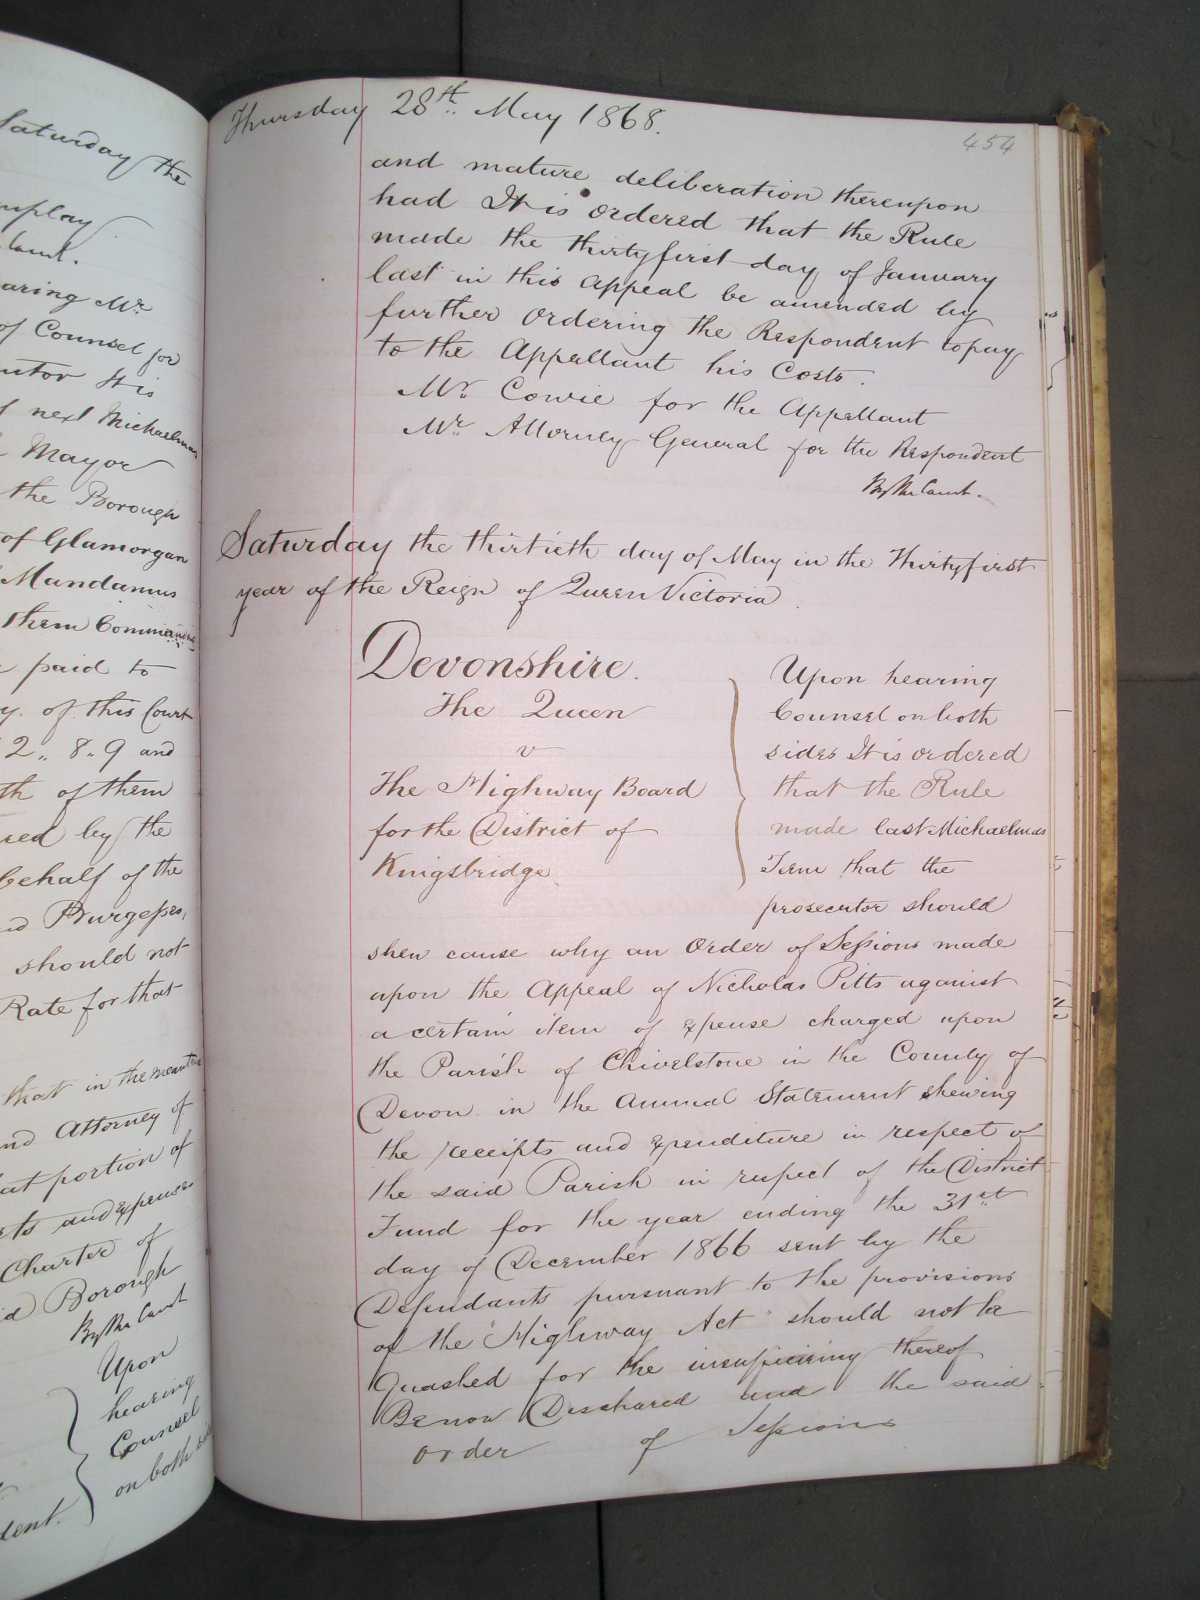 Saturday the
mplay
Court.
aring Mr.
of Counsel for
utor It is
next Michaelmas
Mayor
the Borough
of Glamorgan
Mandamus
them Comman
paid to
y. of this Court
2,, 8,, 9 and
th of them
ured by the
behalf of the
nd Burgesses,
should not
Rate for that
that in the meantime
nd Attorney of
at portion of
sts and expenses
Charter of
d Borough
By the Court
Upon
hearing
Counsel
on both
dent.
Thursday 28th May 1868.
454
and mature deliberation thereupon
had It is ordered that the Rule
made the thirtyfirst day of January
last in this Appeal be amended by
further Ordering the Respondent to pay
to the Appellant his Costs.
Mr. Cowie for the Appellant
Mr. Attorney General for the Respondent
By the Court.
Saturday the thirtieth day of May in the Thirtyfirst
year of the Reign of Queen Victoria.
Devonshire.
The Queen
v
The Highway Board
for the District of
Kingsbridge.
Upon hearing
Counsel on both
sides It is ordered
that the Rule
made last Michaelmas
Term that the
prosecutor should
shew cause why an Order of Sessions made
upon the Appeal of Nicholas Pitts against
a certain item of expense charged upon
the Parish of Chivelstone in the County of
Devon in the Annual Statement shewing
the receipts and expenditure in respect of
the said Parish in respect of the District
Fund for the year ending the 31st
day of December 1866 sent by the
Defendants pursuant to the provisions
of the "Highway Act" should not be
Quashed for the insufficiency thereof
Be now Discharged and the said
Order of Sessions